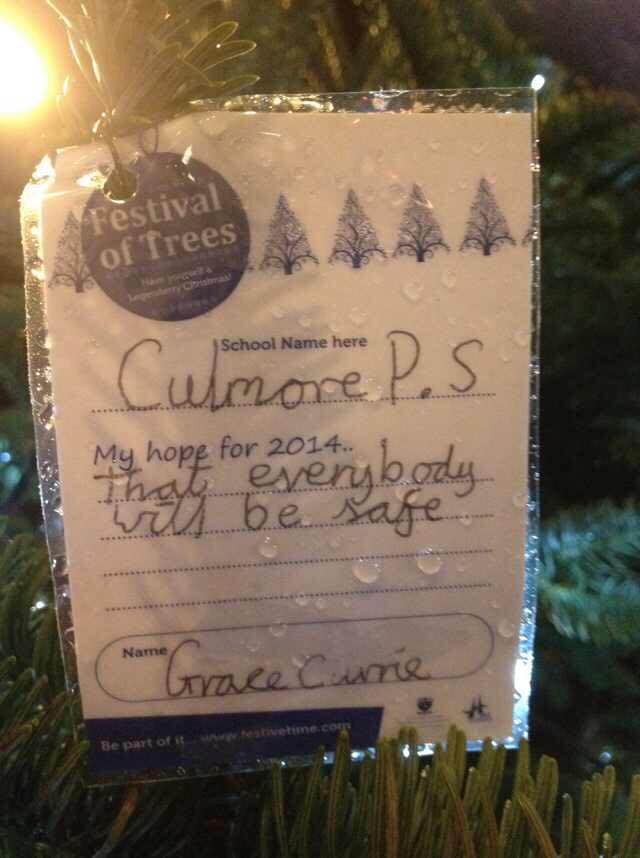 Festival
of Trees
Have yourself a
Legenderry Christmas!
School Name here
Culmore P.S
My hope for 2014..
that everybody
will be safe
Name
Grace Currie
Be part of it... www.festivetime.com